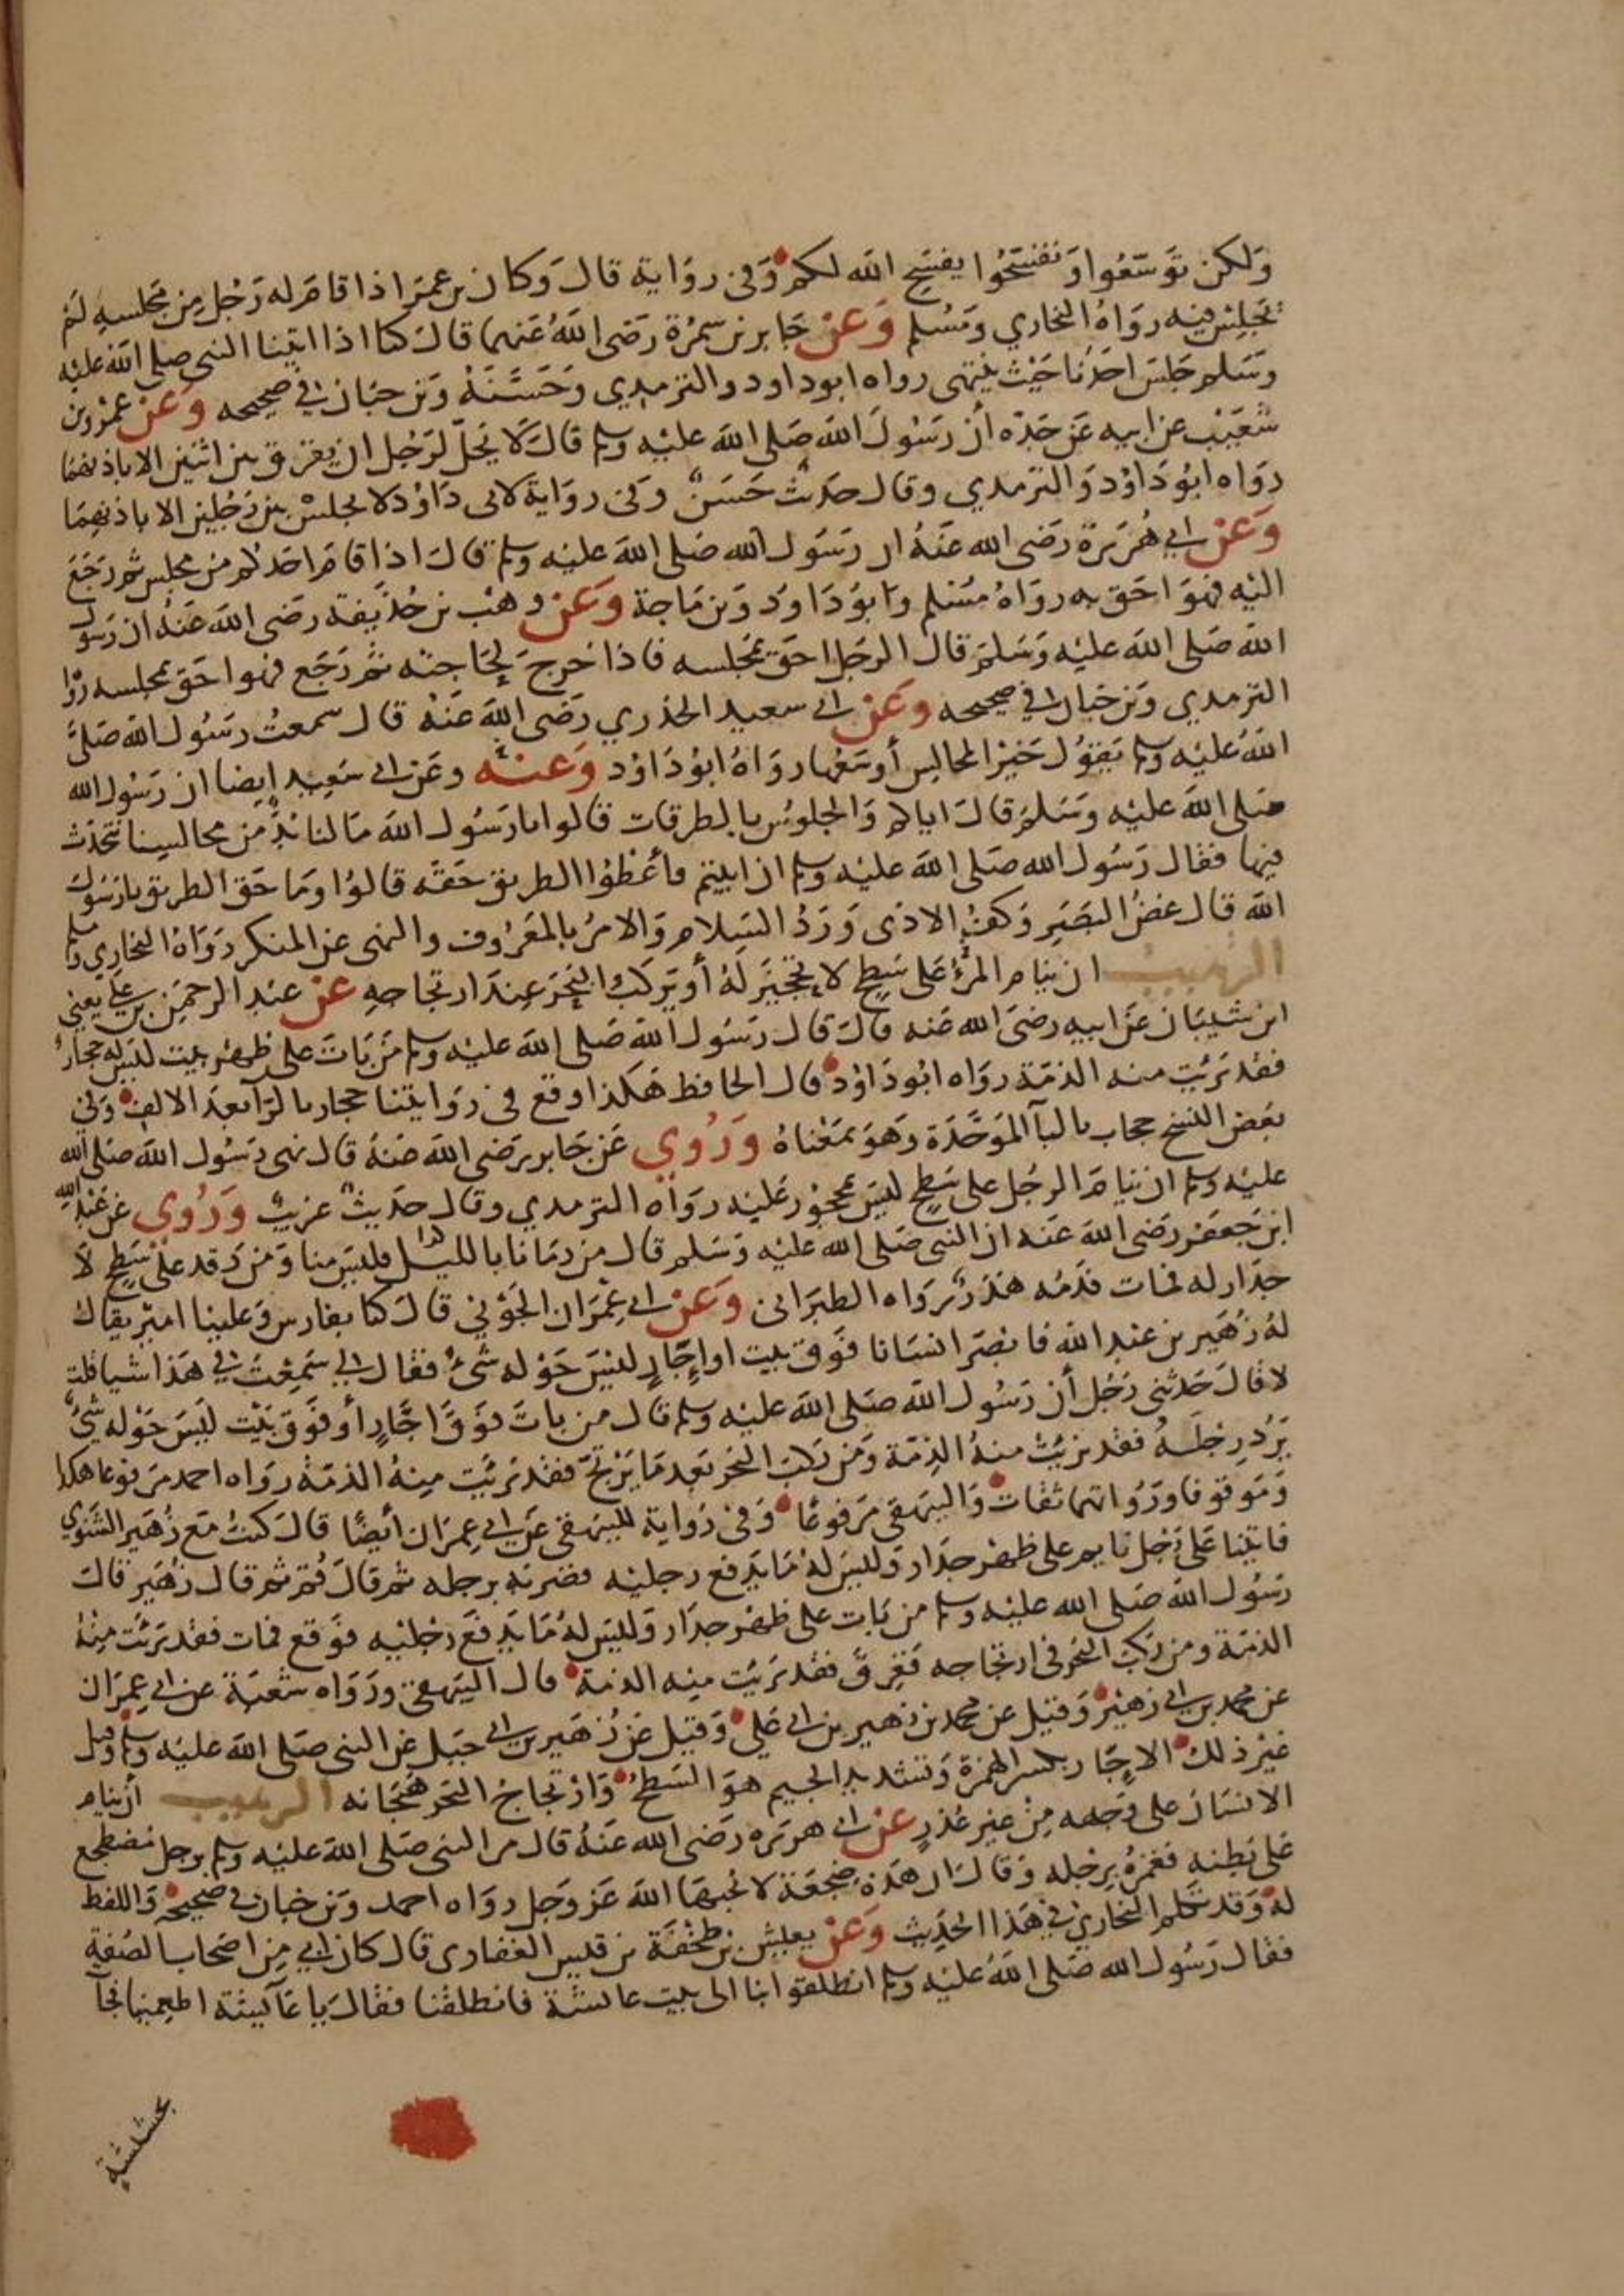 ولكن توسعوا وتفسحوا يفسح الله لكم وفى رواية قال وكان بن عمر اذا قام له رجل من مجلسه لم
يجلس فيه رواه البخاري ومسلم وعن جابر بن سمرة رضى الله عنهما قال كنا اذا اتينا النبى صلى الله عليه
وسلم جلس احدنا حيث ينتهى رواه ابو داود والترمدي وحسنه وبن حبان في صحيحه وعن عمرو بن
شعيب عن ابيه عن جده أن رسول الله صلى الله عليه وسلم قال لا يحل لرجل ان يفرق بين اثنين الا باذنهما
رواه ابو داود والترمدي وقال حديث حسن وفى رواية لابى داود لا يجلس بين رجلين الا باذنهما
وعن ابي هريرة رضى الله عنه ان رسول الله صلى الله عليه وسلم قال اذا قام احدكم من مجلس ثم رجع
اليه فهو احق به رواه مسلم وابو داود وبن ماجة وعن وهب بن حذيفة رضى الله عنه ان رسول
الله صلى الله عليه وسلم قال الرجل احق بمجلسه فاذا خرج لحاجته ثم رجع فهو احق بمجلسه رواه
الترمدي وبن حبان في صحيحه وعن ابي سعيد الخدري رضى الله عنه قال سمعت رسول الله صلى
الله عليه وسلم يقول خير المجالس أوسعها رواه ابو داود وعنه وعن ابي سعيد ايضا ان رسول الله
صلى الله عليه وسلم قال اياكم والجلوس بالطرقات قالوا يا رسول الله ما لنا بد من مجالسنا نتحدث
فيها فقال رسول الله صلى الله عليه وسلم ان ابيتم فأعطوا الطريق حقه قالوا وما حق الطريق يا رسول
الله قال غض البصر وكف الاذى ورد السلام والامر بالمعروف والنهى عن المنكر رواه البخاري ومسلم
الترهيب ان ينام المرء على سطح لا تحجير له أو يركب البحر عند ارتجاجه عن عبد الرحمن بن علي يعني
ابن شيبان عن ابيه رضى الله عنه قال قال رسول الله صلى الله عليه وسلم من بات على ظهر بيت ليس له حجار
فقد برئت منه الذمة رواه ابو داود قال الحافظ هكذا وقع فى روايتنا حجار بالرآ بعد الالف وفى
بعض النسخ حجاب بالبآ الموحدة وهو بمعناه وروي عن جابر رضى الله عنه قال نهى رسول الله صلى الله
عليه وسلم ان ينام الرجل على سطح ليس بمحجور عليه رواه الترمدي وقال حديث غريب وروي عن عبد الله
ابن جعفر رضى الله عنه ان النبى صلى الله عليه وسلم قال من رمانا بالليل فليس منا ومن رقد على سطح لا
جدار له فمات فدمه هدر رواه الطبرانى وعن ابي عمران الجوني قال كنا بفارس وعلينا امير يقال
له زهير بن عبد الله فابصر انسانا فوق بيت او اجار ليس حوله شئ فقال لي سمعت في هذا شيا قلت
لا قال حدثنى رجل أن رسول الله صلى الله عليه وسلم قال من بات فوق اجار أو فوق بيت ليس حوله شئ
يرد رجله فقد برئت منه الذمة ومن ركب البحر بعد ما يرتج فقد برئت منه الذمة رواه احمد مرفوعا هكذا
وموقوفا ورواتهما ثقات والبيهقى مرفوعا وفى رواية للبيهقى عن ابي عمران أيضا قال كنت مع زهير الشنوي
فاتينا على رجل نايم على ظهر جدار وليس له ما يدفع رجليه فضربه برجله ثم قال قم ثم قال زهير قال
رسول الله صلى الله عليه وسلم من بات على ظهر جدار وليس له ما يدفع رجليه فوقع فمات فقد برئت منه
الذمة ومن ركب البحر فى ارتجاجه فغرق فقد برئت منه الذمة قال البيهقى ورواه شعبة عن ابي عمران
عن محمد بن ابي زهير وقيل عن محمد بن زهير بن ابي علي وقيل عن زهير بن ابي جبل عن النبى صلى الله عليه وسلم وقيل
غير ذلك الاجار بكسر الهمزة وتشديد الجيم هو السطح وارتجاج البحر هيجانه الترهيب أن ينام
الانسان على وجهه من غير عذر عن ابي هريره رضى الله عنه قال مر النبى صلى الله عليه وسلم برجل مضطجع
على بطنه فغمزه برجله وقال ان هذه ضجعة لا يحبها الله عز وجل رواه احمد وبن حبان في صحيحه واللفظ
له وقد تكلم البخاري في هذا الحديث وعن يعيش بن طخفة بن قيس الغفارى قال كان ابي من اصحاب الصفة
فقال رسول الله صلى الله عليه وسلم انطلقوا بنا الى بيت عائشة فانطلقنا فقال يا عآيشة اطعمينا فجآ
بحشيشة